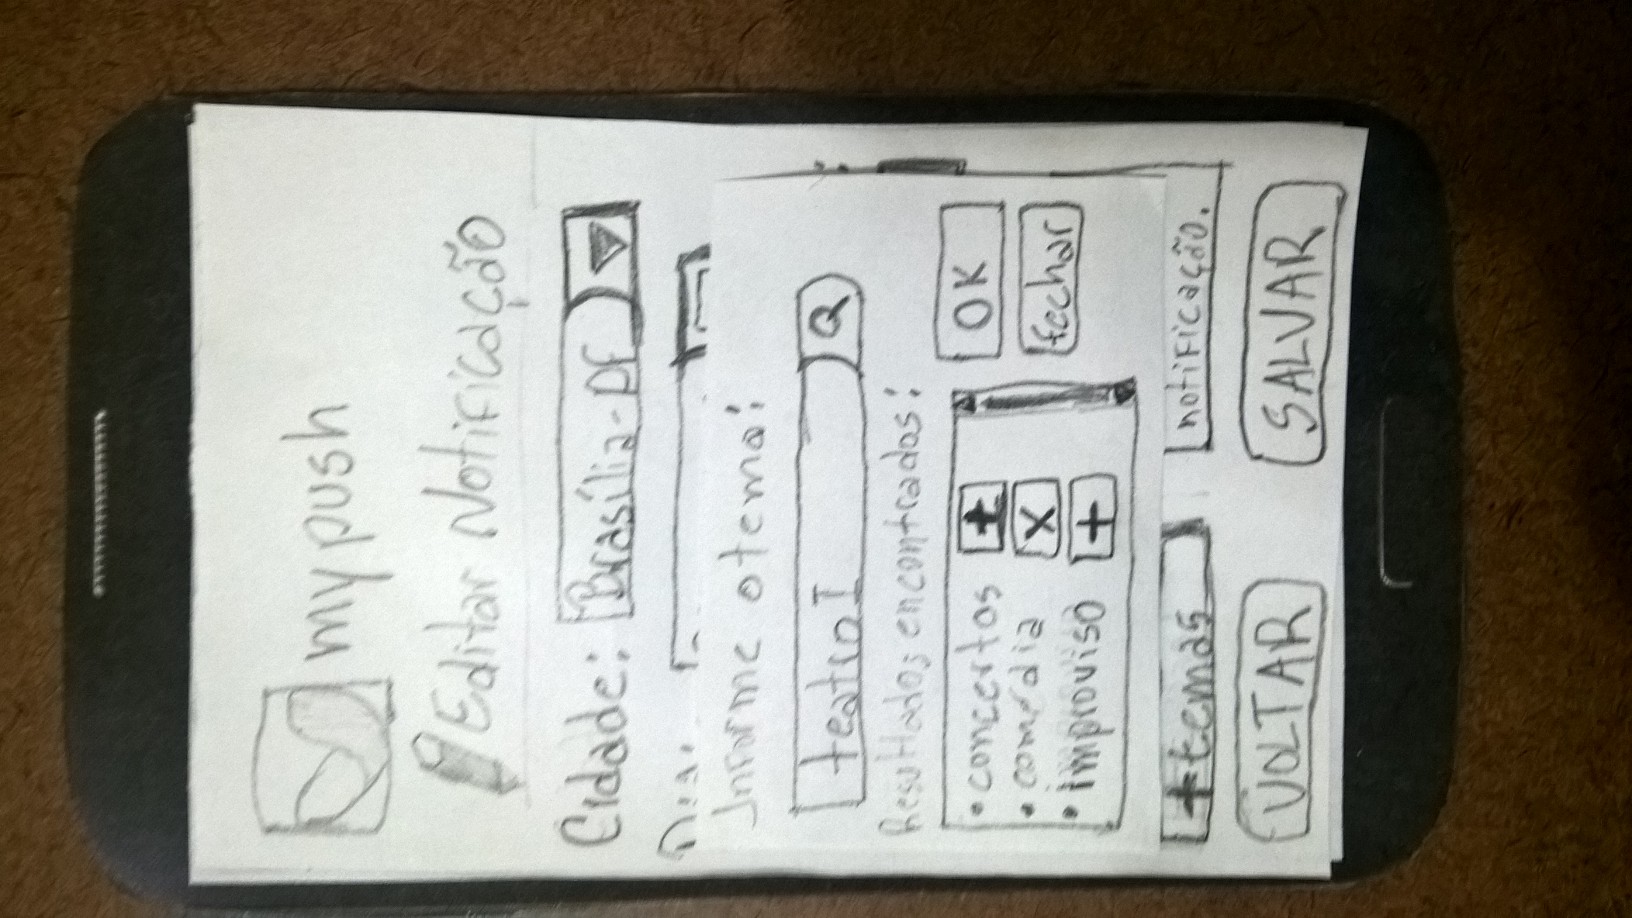 my push
Editar Notificação
Cidade: Brasília-DF
Informe o tema:
teatro
Resultados encontrados:
• concertos +
• comédia X
• improviso +
OK
fechar
+ temas
notificação.
VOLTAR
SALVAR